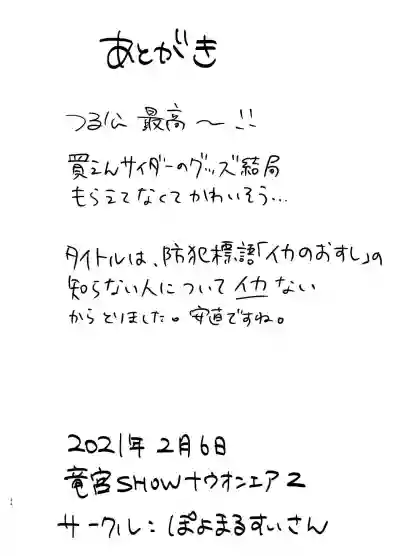 あとがき
つる公 最高～!!
買えんサイダーのグッズ結局
もらえてなくてかわいそう…
タイトルは、防犯標語「イカのおすし」の
知らない人についてイカない
からとりました。安直ですね。
2021年2月6日
竜宮SHOWナウオンエア2
サークル:ぽよまるすいさん